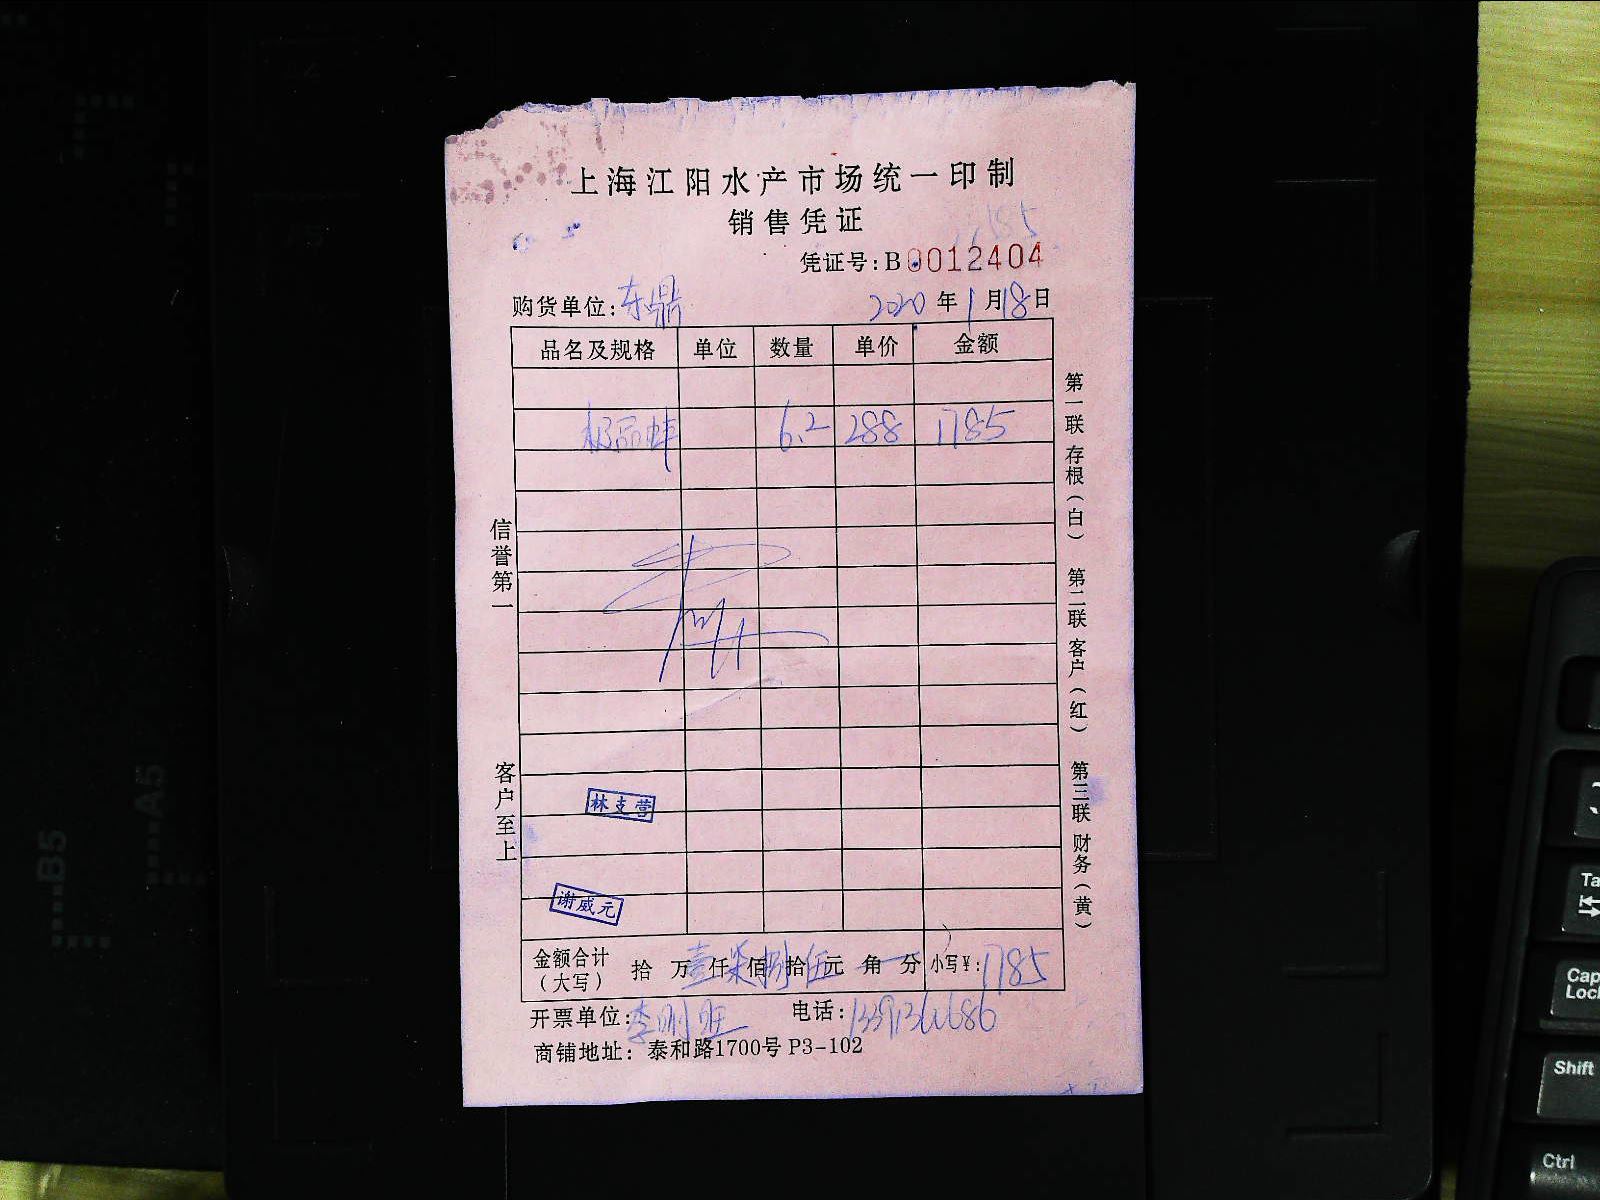 上海江阳水产市场统一印制
销售凭证
1785
凭证号:B0012404
购货单位:东鼎 2020年1月18日
品名及规格 单位 数量 单价 金额
极品蚌 6.2 288 1785
信誉第一
客户至上
林支营
谢威元
第一联 存根(白) 第二联 客户(红) 第三联 财务(黄)
金额合计(大写) 拾万壹仟柒佰捌拾伍元角分 小写¥:1785
开票单位:李刚旺 电话:
商铺地址:泰和路1700号 P3-102
A5
B5
Caps Lock
Shift
Ctrl